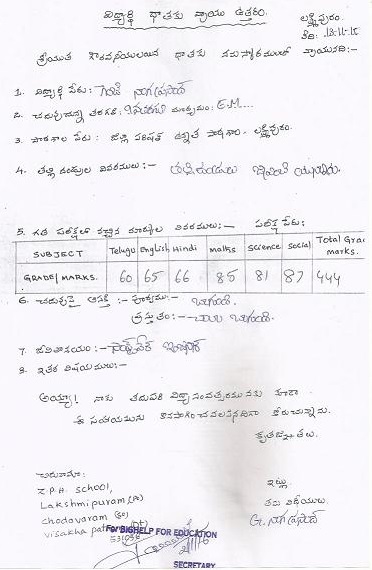 విద్యార్థి దాతకు వ్రాయు ఉత్తరం.
లక్ష్మీపురం.
తేది: 18-11-15
శ్రీయుత గౌరవనీయులయిన దాతకు నమస్కారములతో వ్రాయునది:-
1. విద్యార్థి పేరు:
2. చదువుచున్న తరగతి: మాధ్యమం: E.M....
3. పాఠశాల పేరు: జిల్లా పరిషత్ ఉన్నత పాఠశాల. లక్ష్మీపురం.
4. తల్లిదండ్రుల వివరములు:-
5. గత పరీక్షలో వచ్చిన మార్కుల వివరములు:- పరీక్ష పేరు:
SUBJECT Telugu English Hindi maths Science Social Total Grad marks.
GRADE/MARKS. 60 65 66 85 81 87 444
6. చదువుపై ఆసక్తి :- పూర్వము:- బాగుంది.
ప్రస్తుతం:- చాలా బాగుంది.
7. జీవితాశయం:-
8. ఇతర విషయములు:-
అయ్యా! నాకు తదుపరి విద్యాసంవత్సరమునకు కూడా
ఈ సహాయమును కొనసాగించవలసినదిగా కోరుచున్నాను.
కృతజ్ఞతలు.
చిరునామా:
Z.P.H. SCHOOL,
Lakshmipuram (Po)
chodavaram (so)
visakha patnam (Dt)
531036
ఇట్లు
తమ విధేయులు.
For BIGHELP FOR EDUCATION
SECRETARY